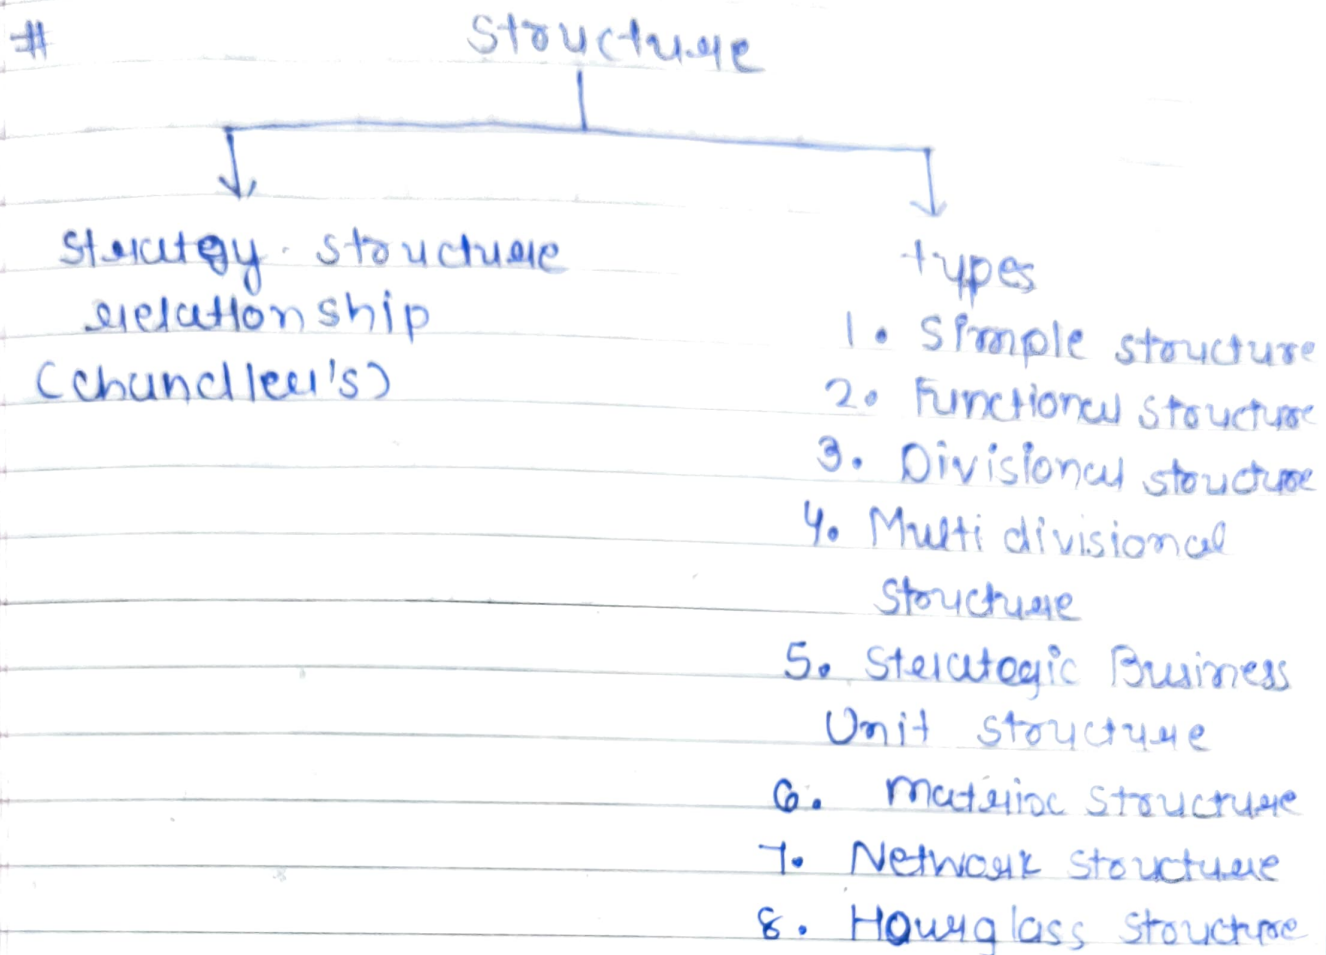 # Structure
Strategy - structure
relationship
(chandler's)
types
1. Simple structure
2. Functional structure
3. Divisional structure
4. Multi divisional
structure
5. Strategic Business
Unit structure
6. Matrix structure
7. Network structure
8. Hourglass structure